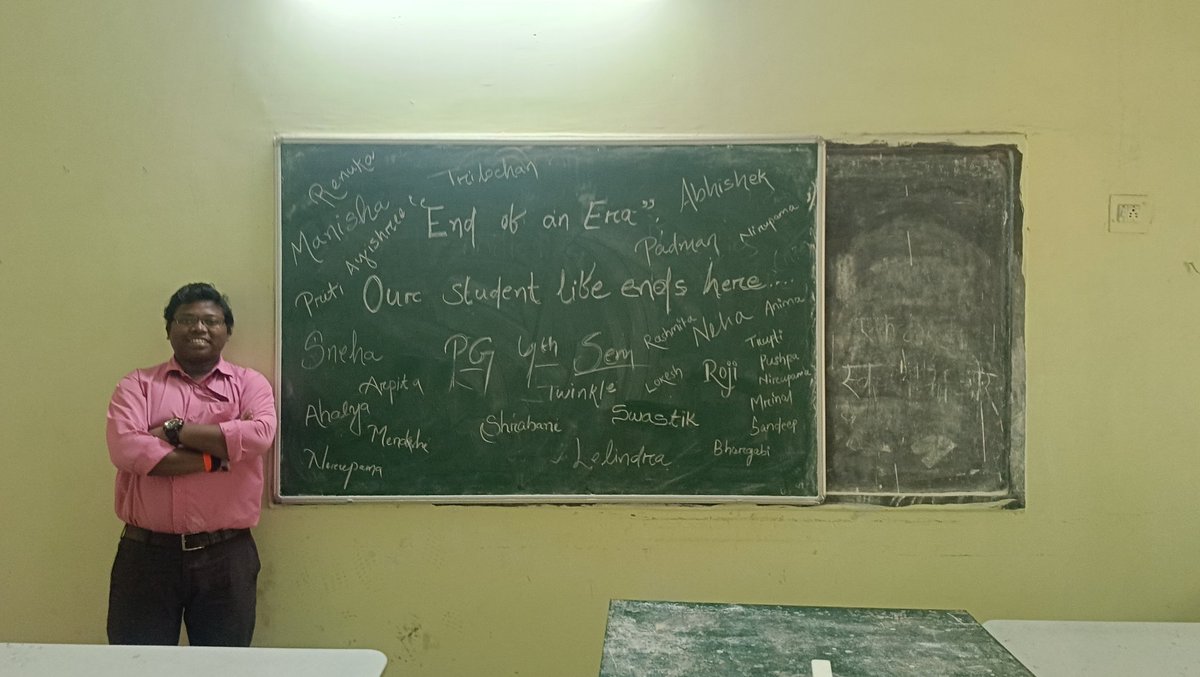 Renuka
Trilochan
Manisha
Abhishek
"End of an Era".
Nirupama
Padman
Pruti Ayishree
Our student life ends here....
Anima
Rashmita
Neha
Sneha
PG 4th Sem
Trupti
Pushpa
Roji
Lokesh
Nirupama
Arpita
Twinkle
Mrinal
Ahalya
Shrabani
Swastik
Sandeep
Bhargabi
Lelindra
Nirupama